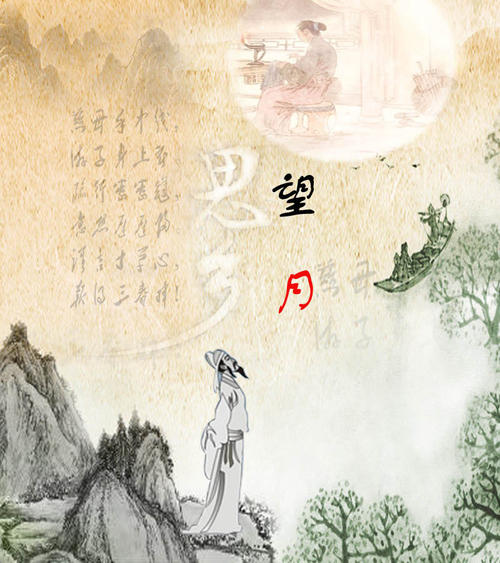 慈母手中线，
游子身上衣。
临行密密缝，
意恐迟迟归。
谁言寸草心，
报得三春晖！
思乡
望月
慈母
游子